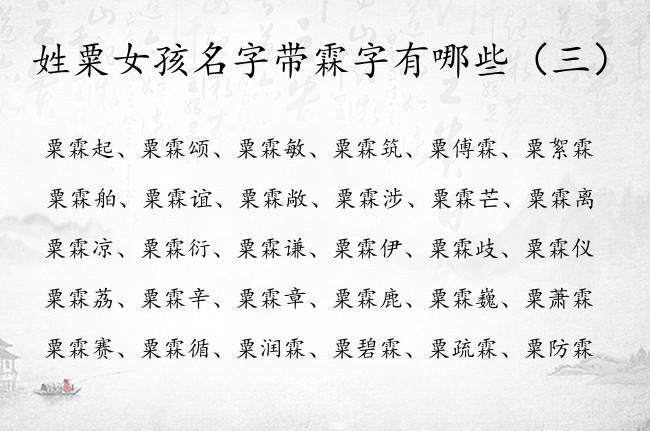 姓粟女孩名字带霖字有哪些（三）
粟霖起、粟霖颂、粟霖敏、粟霖筑、粟傅霖、粟絮霖
粟霖舶、粟霖谊、粟霖敞、粟霖涉、粟霖芒、粟霖离
粟霖凉、粟霖衍、粟霖谦、粟霖伊、粟霖歧、粟霖仪
粟霖荔、粟霖辛、粟霖章、粟霖鹿、粟霖巍、粟萧霖
粟霖赛、粟霖循、粟润霖、粟碧霖、粟疏霖、粟防霖